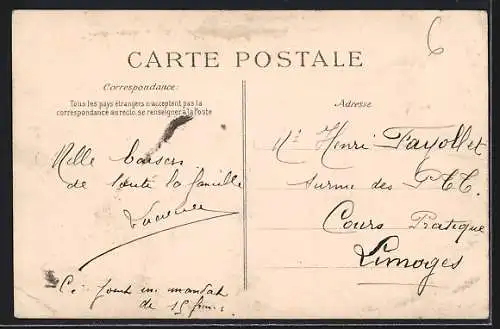 6
CARTE POSTALE
Correspondance:
Tous les pays étrangers n'acceptent pas la
correspondance au recto, se renseigner à la Poste
Adresse
Mille baisers
de toute la famille
Mr Henri Fayollet
des P.T.T.
Cours Pratique
Limoges
Ci joint un mandat
de 15 frs